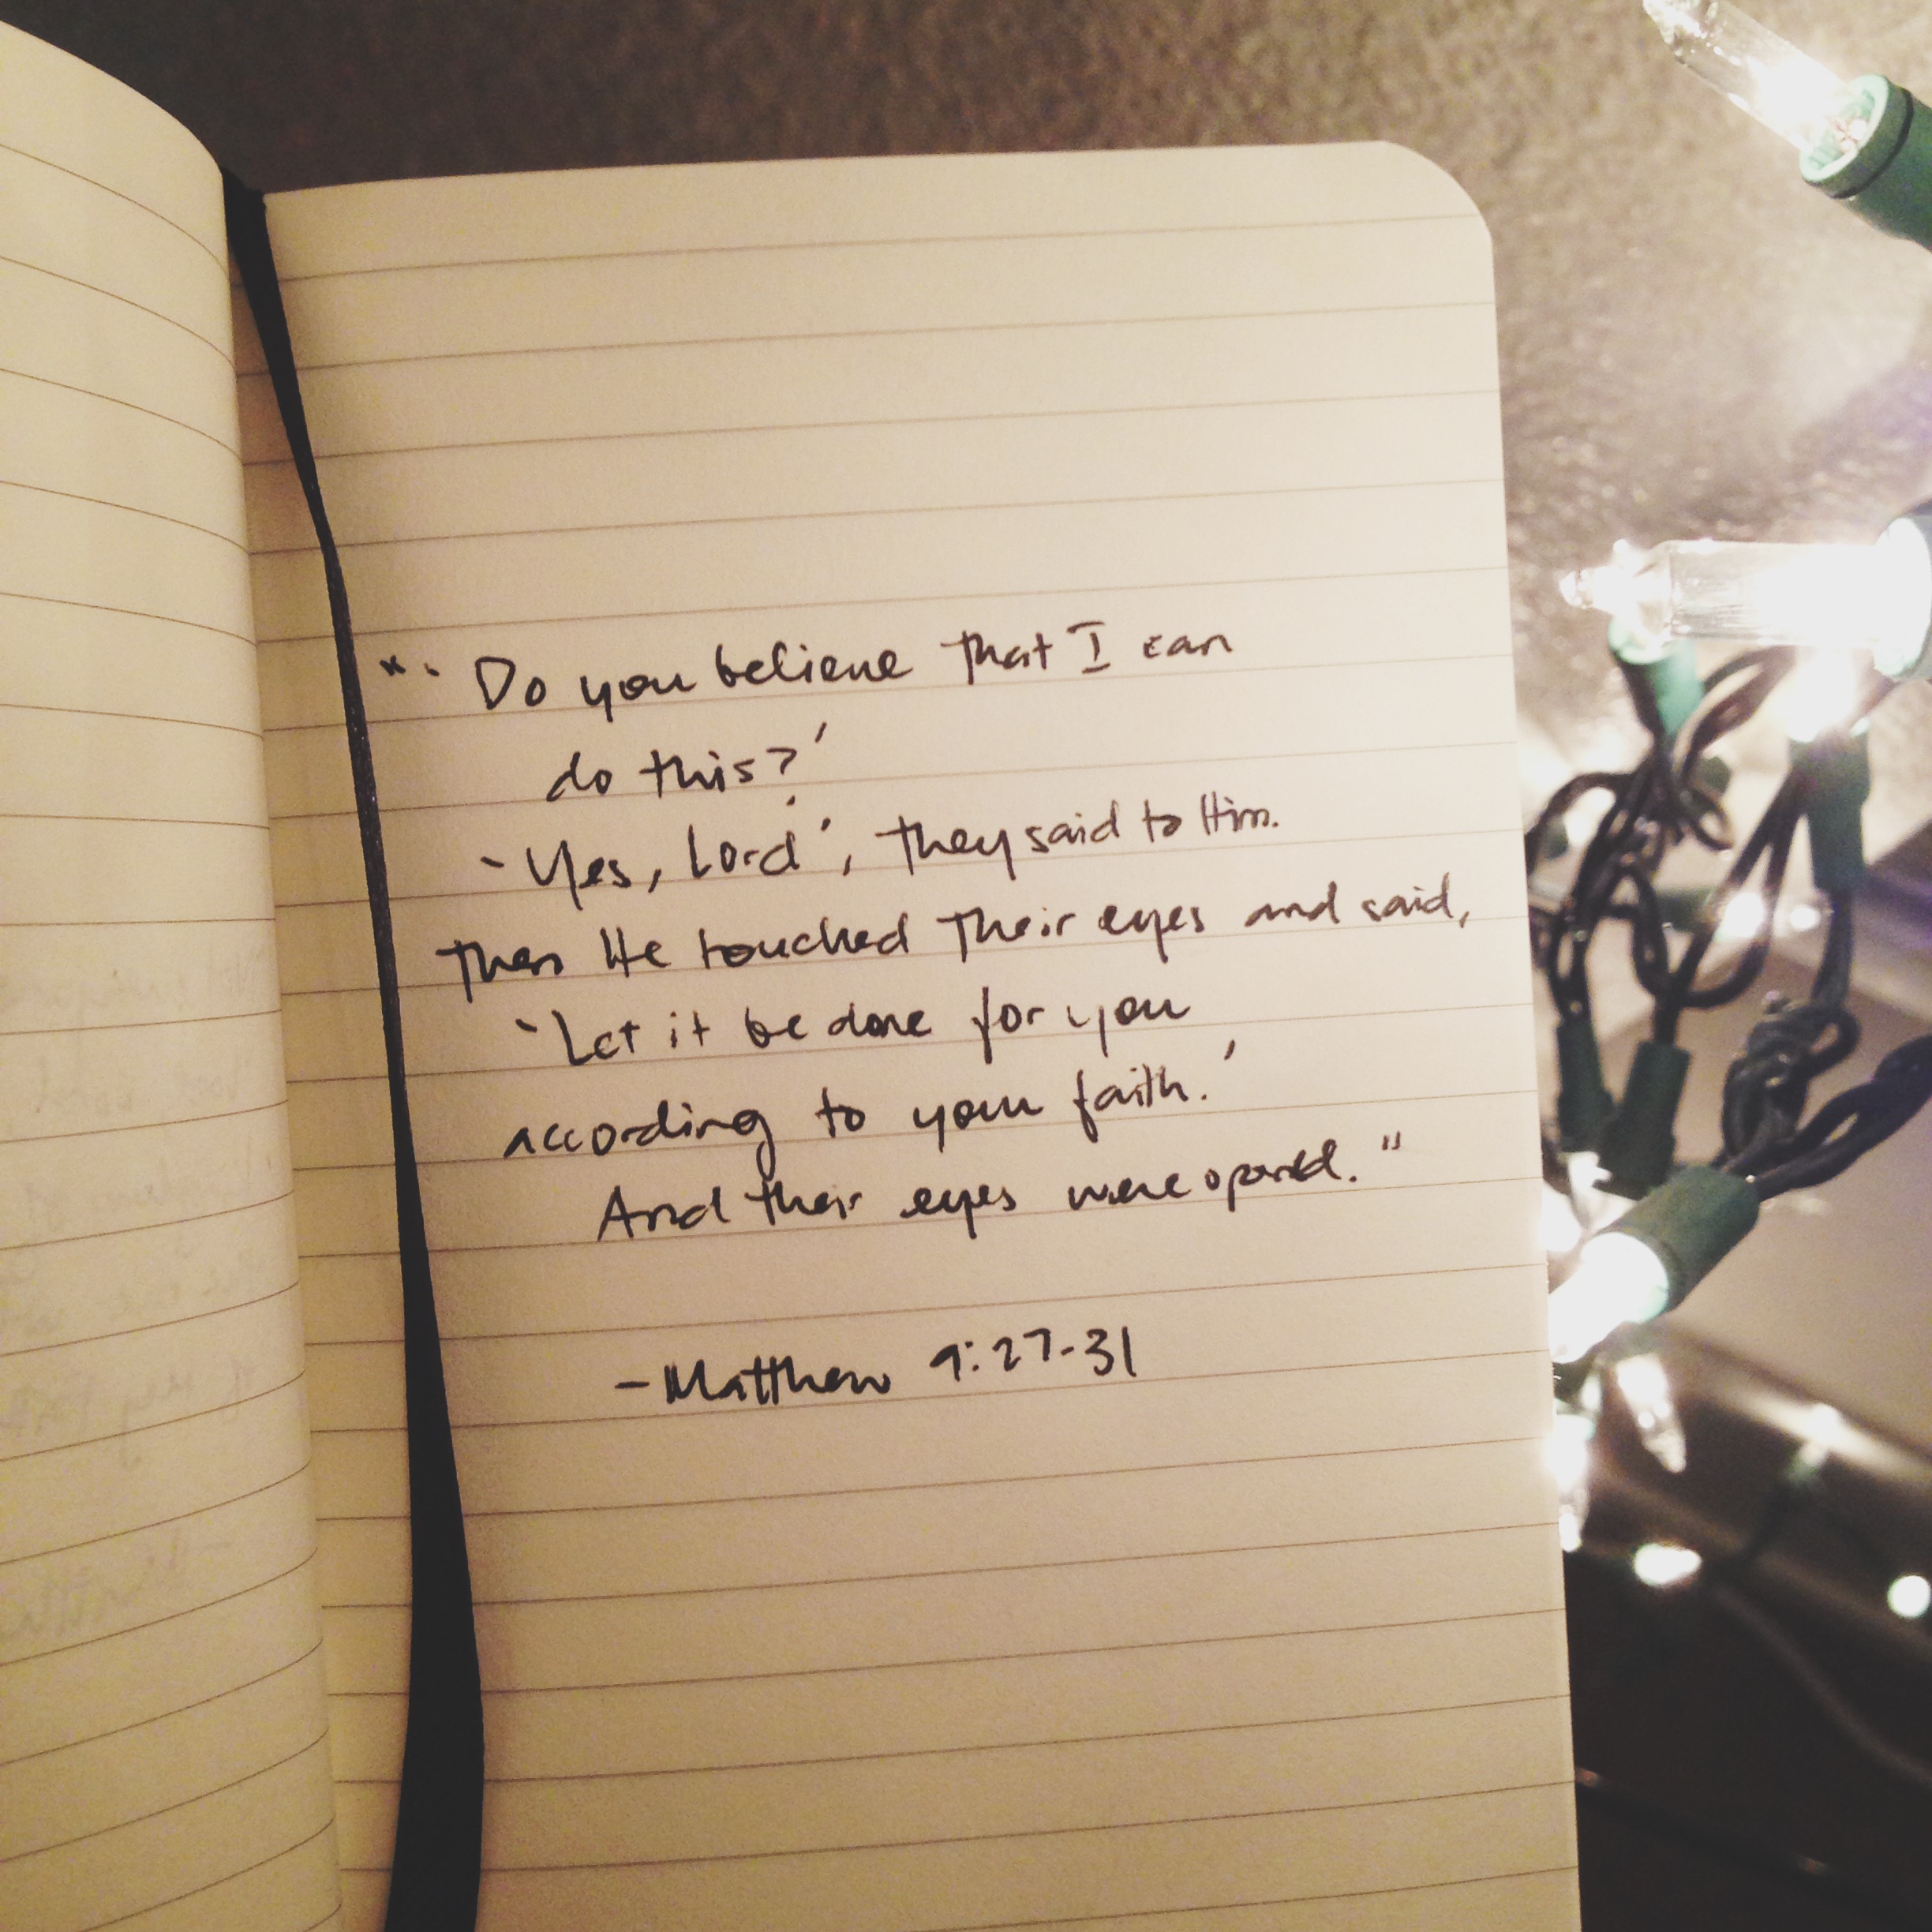 "'Do you believe that I can
do this?'
'Yes, Lord', they said to Him.
Then He touched their eyes and said,
'Let it be done for you
according to your faith.'
And their eyes were opened."
-Matthew 9:27-31